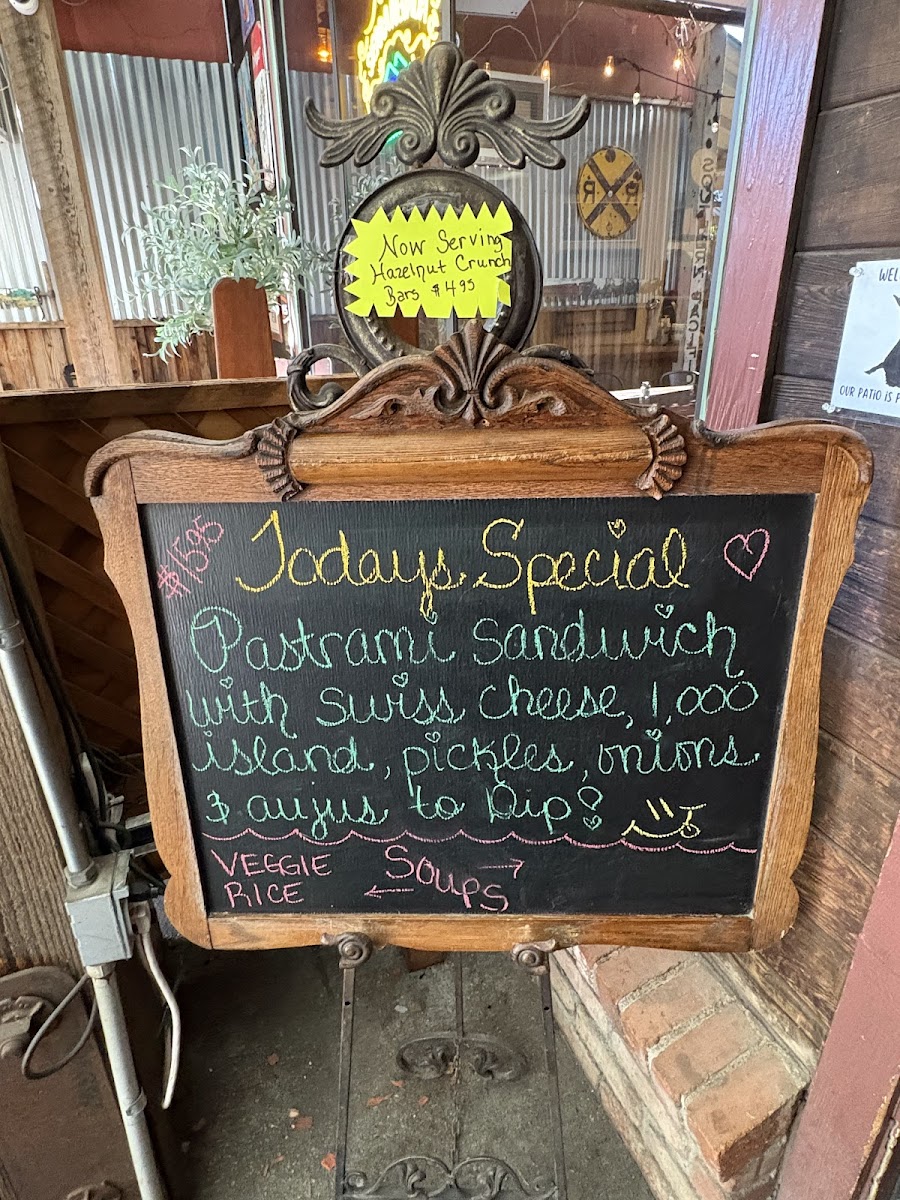 Now Serving
Hazelnut Crunch
Bars $4.95
WEL
OUR PATIO IS F
R R
$15.95
Todays Special
Pastrami Sandwich
with swiss cheese, 1,000
island, pickles, onions
$ aujus to Dip!
VEGGIE
RICE
Soups